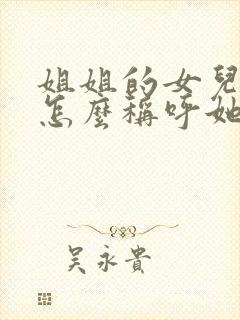 姐姐的女兒
怎麼稱呼她
吳永貴